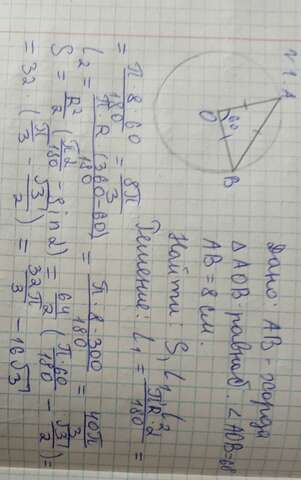 № 1.
A
O
60°
B
Дано: AB - хорда
△AOB-равноб. ∠AOB=60
AB = 8 см.
Найти: S, l₁, l₂
Решение: l₁ = πR·α/180 =
= π 8 60/180 = 8π/3
l₂ = π·R(360-60)/180 = π 8·300/180 = 40π/3
S = R²/2 (πα/180 - sin α) = 64/2 (π 60/180 - √3/2) =
= 32 (π/3 - √3/2) = 32π/3 - 16√3